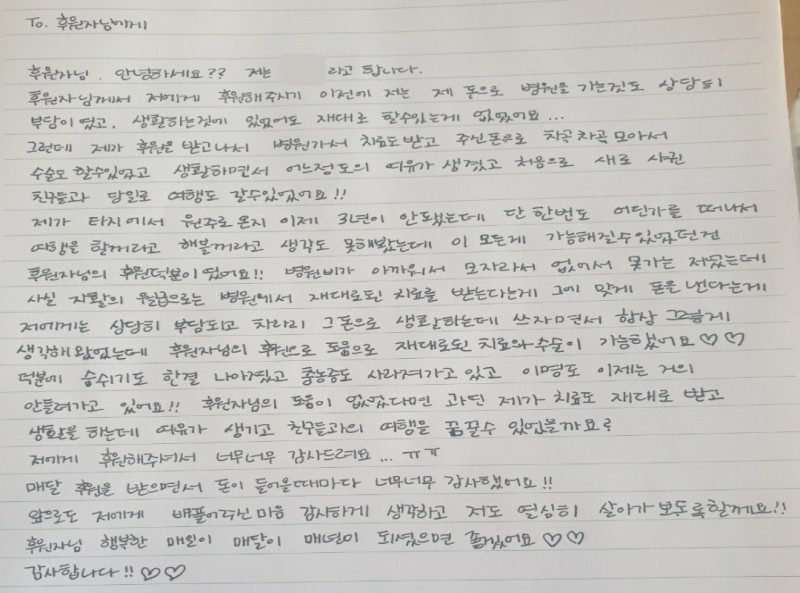 To. 후원자님에게
후원자님. 안녕하세요?? 저는 라고 합니다.
후원자님께서 저에게 후원해주시기 이전에 저는 제 돈으로 병원을 가는것도 상당히
부담이였고, 생활하는것에 있었어도 재대로 할수있는게 없었어요...
그런데 제가 후원을 받고나서 병원가서 치료도받고 주신돈으로 차곡차곡 모아서
수술도 할수있었고 생활하면서 어느정도의 여유가 생겼고 처음으로 새로 사귄
친구들과 당일로 여행도 갈수있었어요!!
제가 타지에서 원주로온지 이제 3년이 안됐는데 단 한번도 어딘가를 떠나서
여행을 할꺼라고 해볼꺼라고 생각도 못해봤는데 이 모든게 가능해질수있었던건
후원자님의 후원덕분이였어요!! 병원비가 아까워서 모자라서 없어서 못가는 저였는데
사실 자활의 월급으로는 병원에서 재대로된 치료를 받는다는게 그에 맞게 돈을 낸다는게
저에게는 상당히 부담되고 차라리 그돈으로 생활하는데 쓰자면서 항상 그렇게
생각해왔었는데 후원자님의 후원으로 도움으로 재대로된 치료와 수술이 가능했어요♡♡
덕분에 숨쉬기도 한결 나아졌고 축농증도 사라져가고있고 이명도 이제는 거의
안들려가고 있어요!! 후원자님의 도움이 없었다면 과연 제가 치료도 재대로 받고
생활을 하는데 여유가 생기고 친구들과의 여행을 꿈꿀수 있었을까요?
저에게 후원해주셔서 너무너무 감사드려요... ㅠㅠ
매달 후원을 받으면서 돈이 들어올때마다 너무너무 감사했어요!!
앞으로도 저에게 베풀어주신마음 감사하게 생각하고 저도 열심히 살아가보도록할께요!!
후원자님 행복한 매일이 매달이 매년이 되셨으면 좋겠어요♡♡
감사합니다!!♡♡